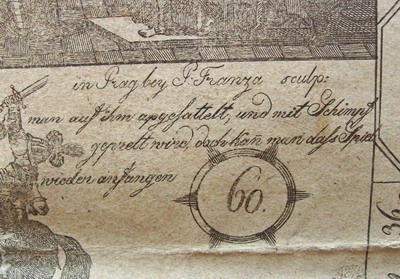 in Prag bey P: Franza sculp:
man auf ihm abgesattelt, und mit Schimpf
geprelt wird, doch kañ man dass Spiel
wieder anfangen
60.
36